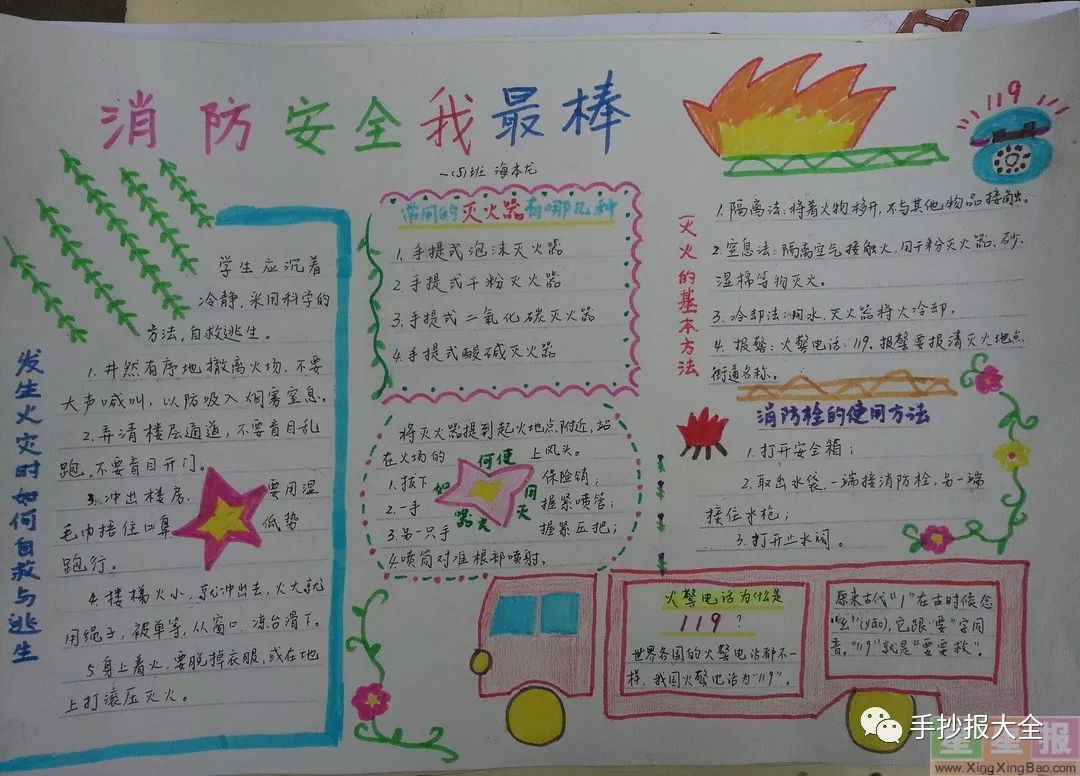 消防安全我最棒
一(5)班 海本龙
119
发生火灾时如何自救与逃生
学生应沉着
冷静,采用科学的
方法,自救逃生。
1.井然有序地撤离火场,不要
大声喊叫,以防吸入烟雾窒息。
2.弄清楼层通道,不要盲目乱
跑,不要盲目开门。
3.冲出楼房,要用湿
毛巾捂住口鼻 低势
跑行。
4.楼梯火小,就冲出去,火大就
用绳子,被单等,从窗口,凉台滑下。
5.身上着火,要脱掉衣服,或在地
上打滚压灭火。
常用的灭火器有哪几种
1.手提式泡沫灭火器
2.手提式干粉灭火器
3.手提式二氧化碳灭火器
4.手提式酸碱灭火器
如何使用灭火器
将灭火器提到起火地点附近,站
在火场的 上风头。
1.拔下 保险销;
2.一手 握紧喷管;
3.另一只手 握紧压把;
4.喷筒对准根部喷射。
灭火的基本方法
1.隔离法:将着火物移开,不与其他物品接触。
2.窒息法:隔离空气接触火,用干粉灭火器、砂、
湿棉等物灭火。
3.冷却法:用水,灭火器将火冷却。
4.报警:火警电话:119.报警要报清灭火地点
街道名称。
消防栓的使用方法
1.打开安全箱;
2.取出水袋,一端接消防栓,另一端
接住水枪;
3.打开止水阀。
火警电话为什是
119?
世界各国的火警电话都不一
样,我国火警电话为"119"。
原来古代"1"在古时候念
"幺"(yāo),它跟"要"字同
音,"119"就是"要要救"。
手抄报大全
星星报
www.XingXingBao.com